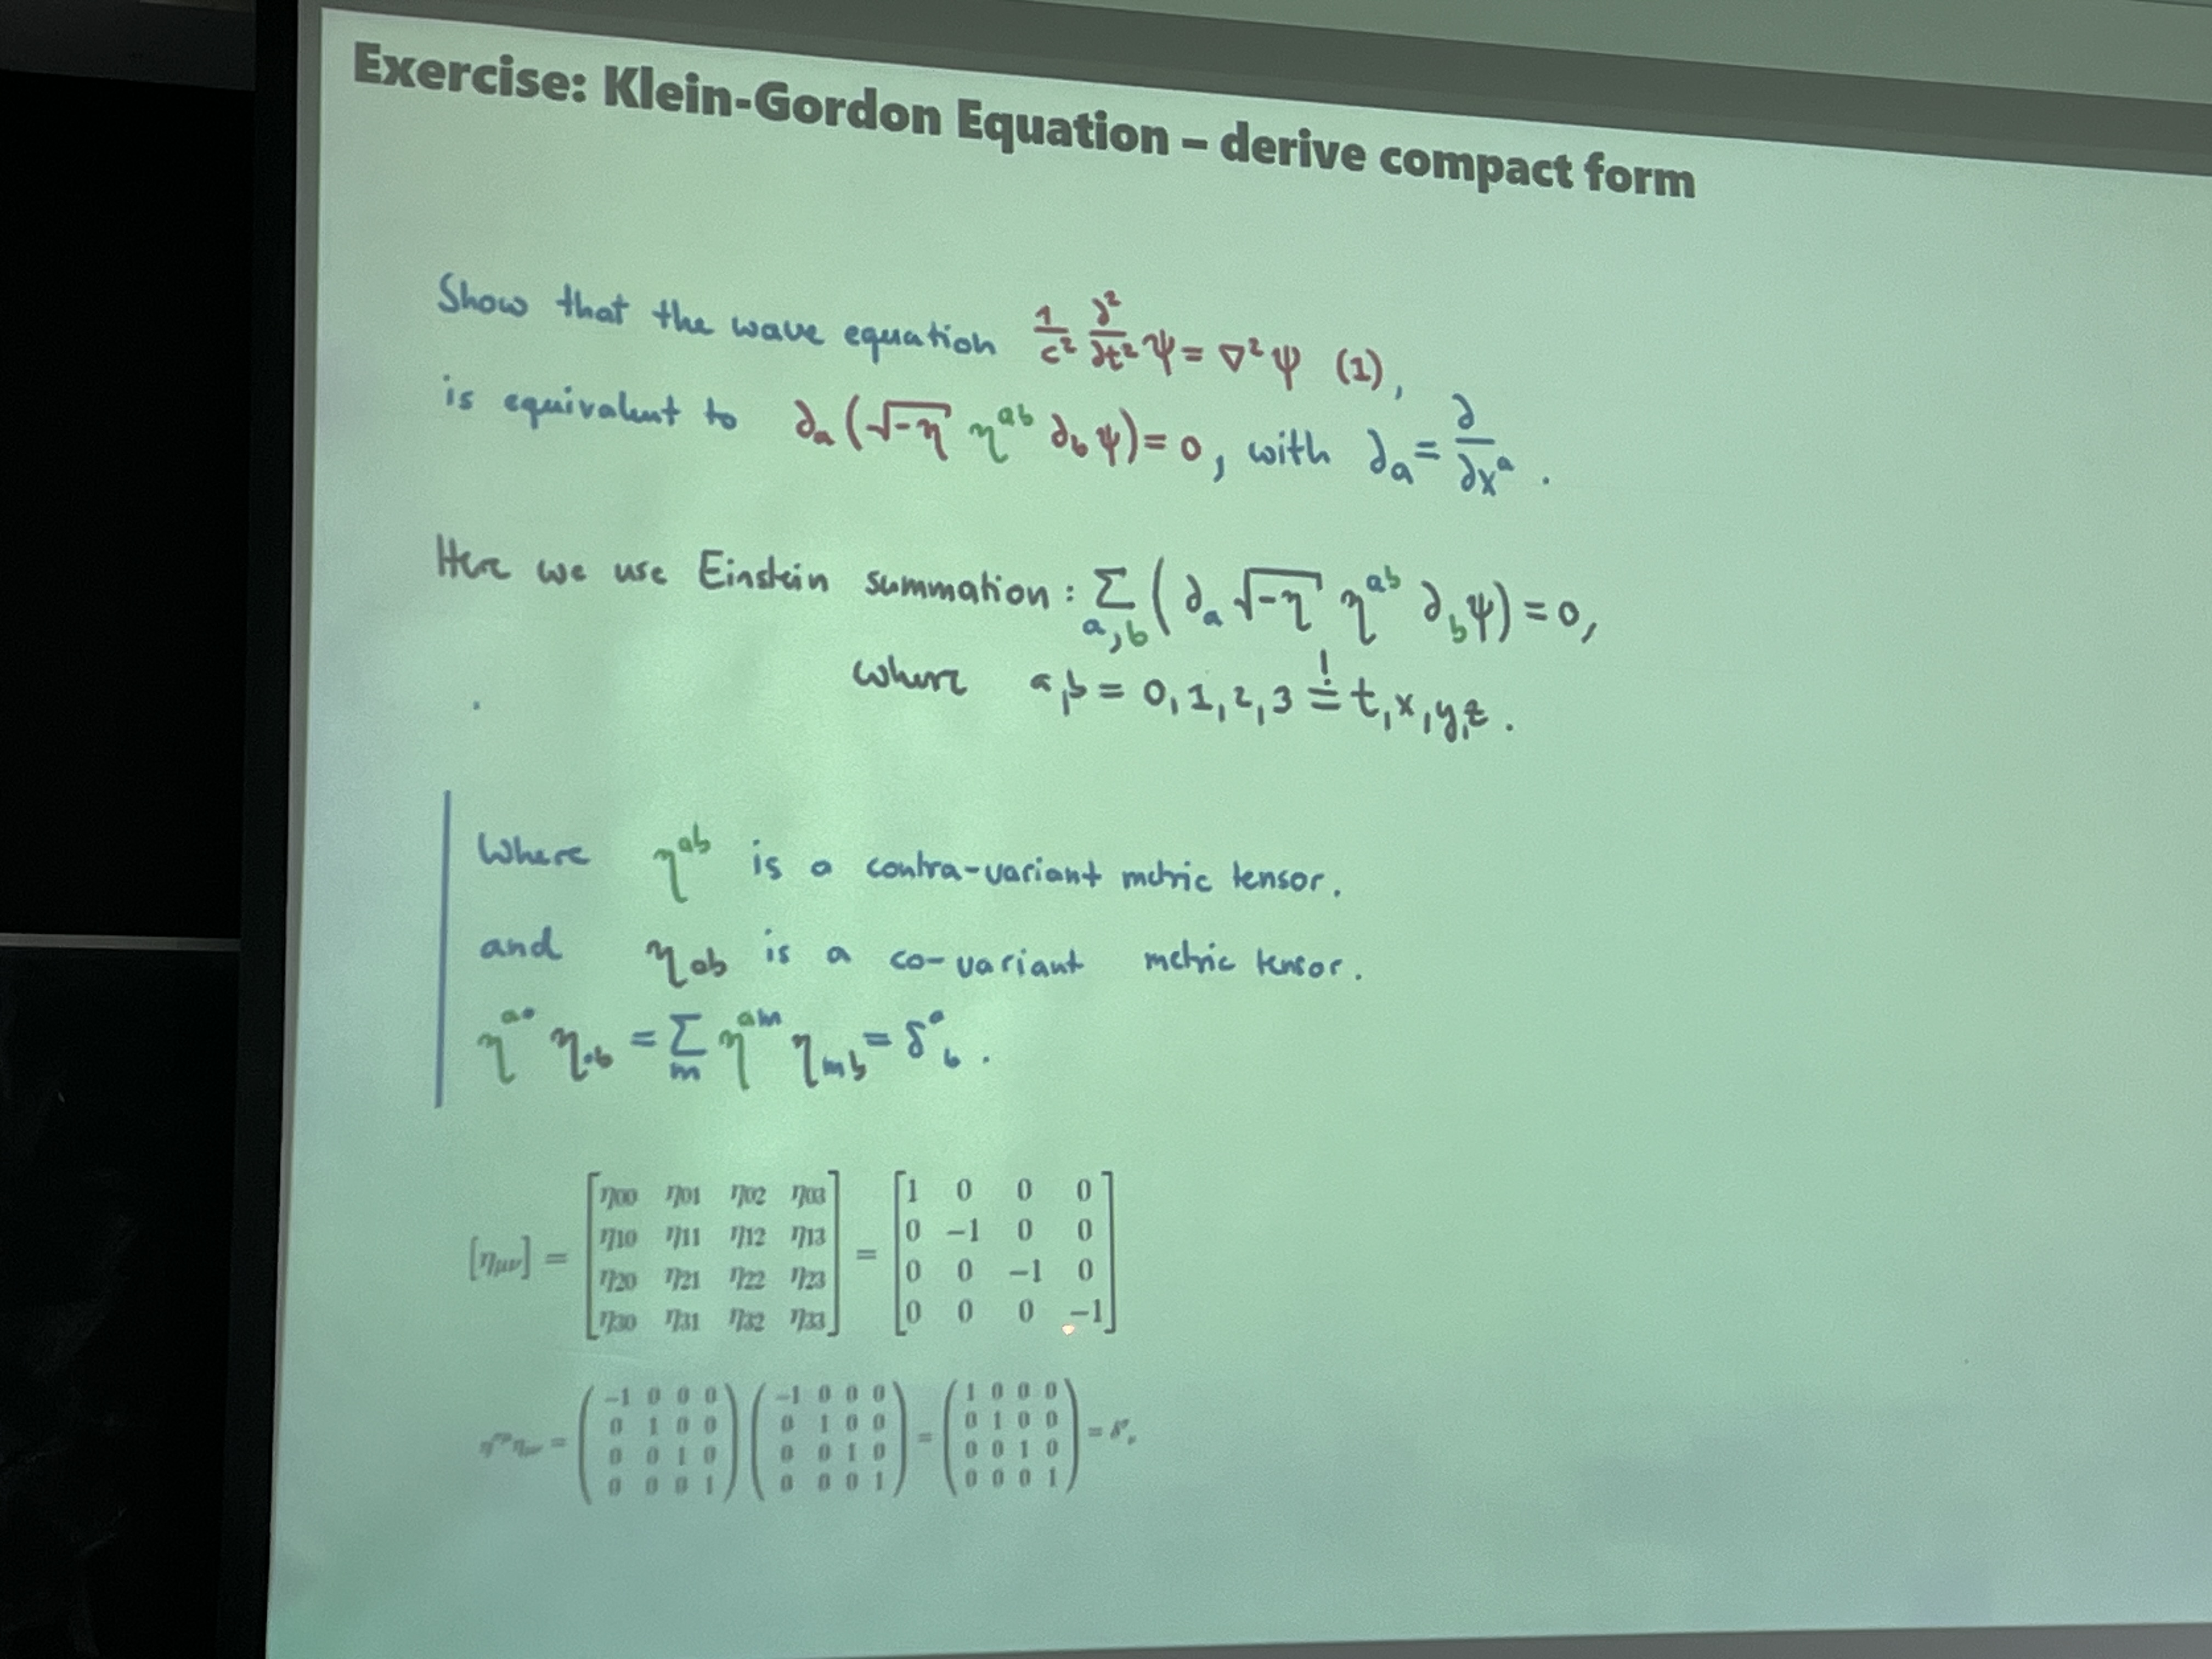 Exercise: Klein-Gordon Equation – derive compact form
Show that the wave equation 1/c² ∂²/∂t² ψ = ∇² ψ (1),
is equivalent to ∂ₐ (√-η η^{ab} ∂_b ψ) = 0, with ∂ₐ = ∂/∂x^a .
Here we use Einstein summation: Σ_{a,b} ( ∂ₐ √-η η^{ab} ∂_b ψ) = 0,
where a,b = 0, 1, 2, 3 ≐ t, x, y, z .
Where η^{ab} is a contra-variant metric tensor.
and η_{ab} is a co-variant metric tensor.
η^{a•} η_{•b} = Σ_m η^{am} η_{mb} = δ^a_b .
[η_{μν}] = [η00 η01 η02 η03] = [1 0 0 0]
[η10 η11 η12 η13] [0 −1 0 0]
[η20 η21 η22 η23] [0 0 −1 0]
[η30 η31 η32 η33] [0 0 0 −1]
= (−1 0 0 0) (−1 0 0 0) = (1 0 0 0) =
(0 1 0 0) (0 1 0 0) (0 1 0 0)
(0 0 1 0) (0 0 1 0) (0 0 1 0)
(0 0 0 1) (0 0 0 1) (0 0 0 1)